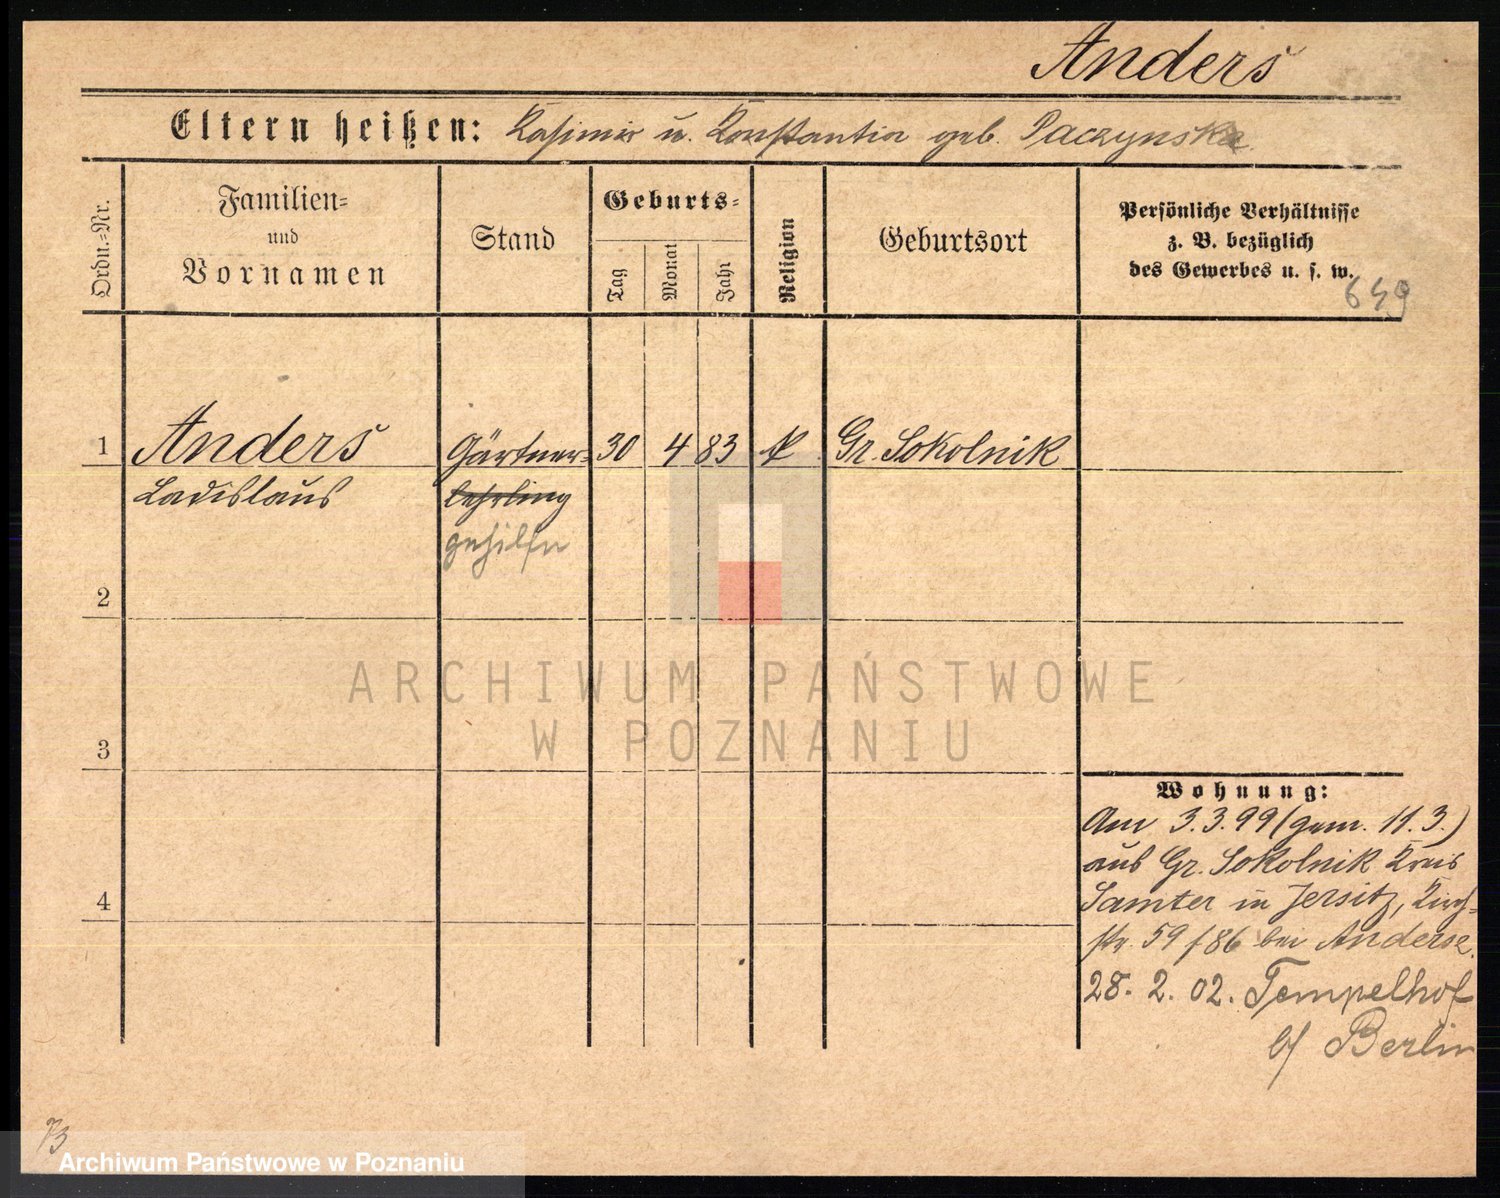 Anders
Eltern heißen: Kasimir u. Konstantia geb. Paczynska.
Ordn.-Nr.
Familien-
und
Vornamen
Stand
Geburts-
Tag
Monat
Jahr
Religion
Geburtsort
Persönliche Verhältnisse
z. B. bezüglich
des Gewerbes u. s. w.
649
1 Anders Gärtner- 30 4 83 k Gr. Sokolnik
Ladislaus lehrling
gehilfe
2
3
4
Wohnung:
Am 3.3.99 (gem. 11.3.)
aus Gr. Sokolnik Kreis
Samter in Jersitz, Kirch-
str. 59/86 bei Anders
28. 2. 02. Tempelhof
b/ Berlin
73
ARCHIWUM PAŃSTWOWE
W POZNANIU
Archiwum Państwowe w Poznaniu